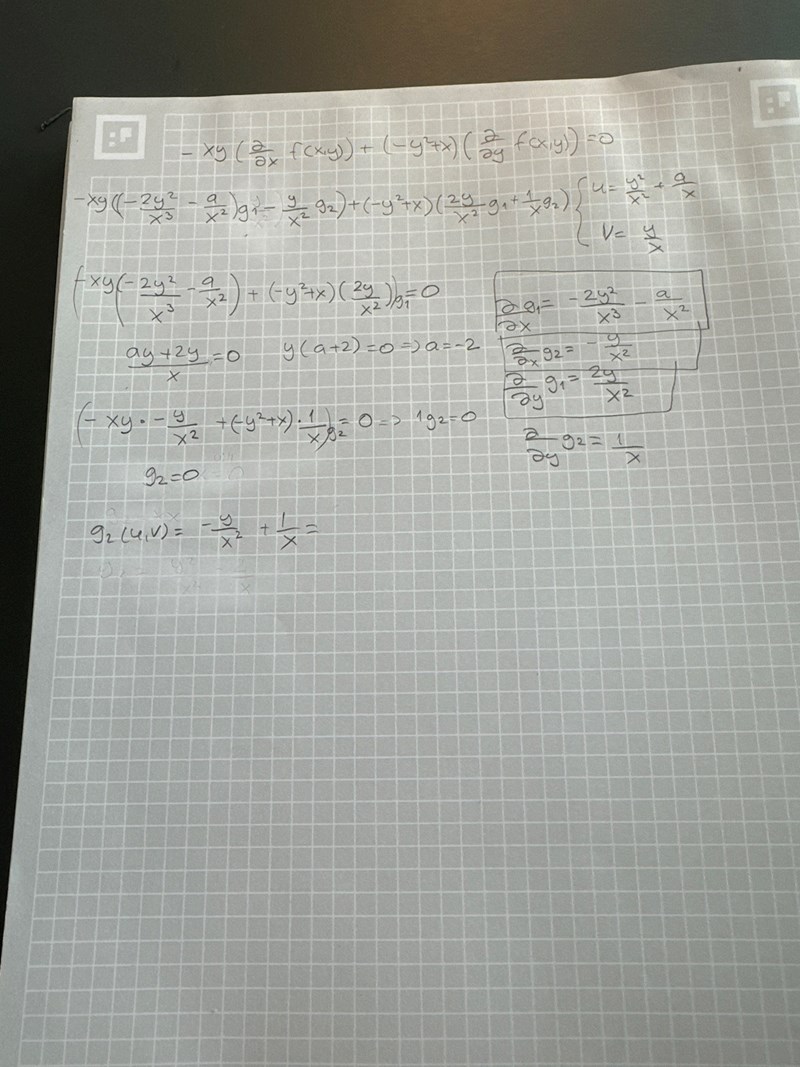 - xy (∂/∂x f(x,y)) + (-y²+x) (∂/∂y f(x,y)) = 0
-xy((-2y²/x³ - a/x²)g₁ - y/x² g₂) + (-y²+x)(2y/x² g₁ + 1/x g₂) { u = y²/x² + a/x
v = y/x
(-xy(-2y²/x³ - a/x²) + (-y²+x)(2y/x²))g₁ = 0
∂/∂x g₁ = -2y²/x³ - a/x²
(ay+2y)/x = 0 y(a+2) = 0 => a = -2
∂/∂x g₂ = -y/x²
∂/∂y g₁ = 2y/x²
(-xy · -y/x² + (-y²+x) · 1/x)g₂ = 0 => 1g₂ = 0
∂/∂y g₂ = 1/x
g₂ = 0
g₂(u,v) = -y/x² + 1/x =